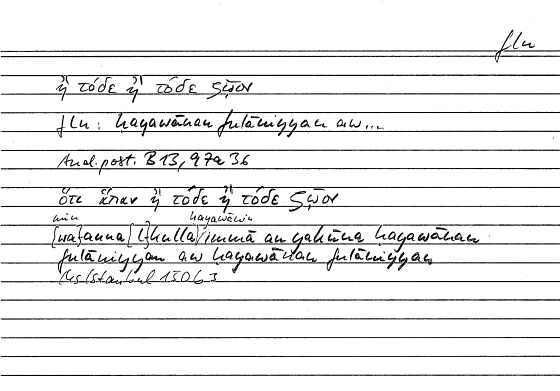 fln
ἢ τόδε ἢ τόδε ζῷον
fln: ḥayawānan fulāniyyan aw...
Anal. post. B 13, 97a 36
ὅτι ἅπαν ἢ τόδε ἢ τόδε ζῷον
min ḥayawānin
[wa]anna [l]kulla/immā an yakūna ḥayawānan
fulāniyyan aw ḥayawānan fulāniyyan
Ms Istanbul 1506 3